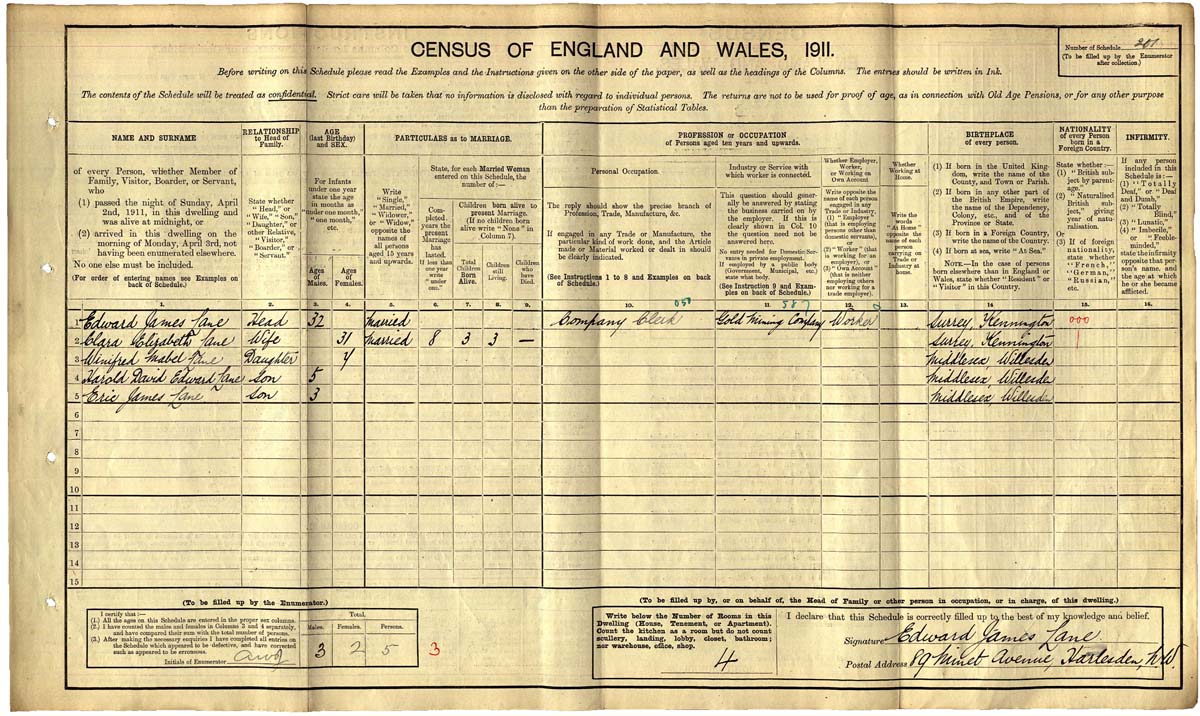 CENSUS OF ENGLAND AND WALES, 1911.
Number of Schedule 201
(To be filled up by the Enumerator
after collection.)
Before writing on this Schedule please read the Examples and the Instructions given on the other side of the paper, as well as the headings of the Columns. The entries should be written in Ink.
The contents of the Schedule will be treated as confidential. Strict care will be taken that no information is disclosed with regard to individual persons. The returns are not to be used for proof of age, as in connection with Old Age Pensions, or for any other purpose
than the preparation of Statistical Tables.
NAME AND SURNAME
of every Person, whether Member of
Family, Visitor, Boarder, or Servant,
who
(1) passed the night of Sunday, April
2nd, 1911, in this dwelling and
was alive at midnight, or
(2) arrived in this dwelling on the
morning of Monday, April 3rd, not
having been enumerated elsewhere.
No one else must be included.
(For order of entering names see Examples on
back of Schedule.)
RELATIONSHIP
to Head of
Family.
State whether
"Head," or
"Wife," "Son,"
"Daughter," or
other Relative,
"Visitor,"
"Boarder," or
"Servant."
AGE
(last Birthday)
and SEX.
For Infants
under one year
state the age
in months as
"under one month,"
"one month,"
etc.
Ages
of
Males.
Ages
of
Females.
PARTICULARS as to MARRIAGE.
Write
"Single,"
"Married,"
"Widower,"
or "Widow,"
opposite the
names of
all persons
aged 15 years
and upwards.
State, for each Married Woman
entered on this Schedule, the
number of:—
Completed
years the
present
Marriage
has
lasted.
If less than
one year
write
"under
one."
Children born alive to
present Marriage.
(If no children born
alive write "None" in
Column 7).
Total
Children
Born
Alive.
Children
still
Living.
Children
who
have
Died.
PROFESSION or OCCUPATION
of Persons aged ten years and upwards.
Personal Occupation.
The reply should show the precise branch of
Profession, Trade, Manufacture, &c.
If engaged in any Trade or Manufacture, the
particular kind of work done, and the Article
made or Material worked or dealt in should
be clearly indicated.
(See Instructions 1 to 8 and Examples on back
of Schedule.)
Industry or Service with
which worker is connected.
This question should generally
be answered by stating
the business carried on
by the employer. If this is
clearly shown in Col. 10
the question need not be
answered here.
No entry needed for Domestic Servants
in private employment.
If employed by a public body
(Government, Municipal, etc.)
state what body.
(See Instruction 9 and Examples
on back of Schedule.)
Whether Employer,
Worker,
or Working on
Own Account
Write opposite the
name of each person
engaged in any
Trade or Industry,
(1) "Employer"
(that is employing
persons other than
domestic servants),
or
(2) "Worker" (that
is working for an
employer), or
(3) "Own Account"
(that is neither
employing others
nor working for a
trade employer).
Whether
Working at
Home.
Write the
words
"At Home"
opposite the
name of each
person
carrying on
Trade or
Industry at
home.
BIRTHPLACE
of every person.
(1) If born in the United Kingdom,
write the name of the
County, and Town or Parish.
(2) If born in any other part of
the British Empire, write
the name of the Dependency,
Colony, etc., and of the
Province or State.
(3) If born in a Foreign Country,
write the name of the Country.
(4) If born at sea, write "At Sea."
NOTE.—In the case of persons
born elsewhere than in England or
Wales, state whether "Resident" or
"Visitor" in this Country.
NATIONALITY
of every Person
born in a
Foreign Country.
State whether:—
(1) "British subject
by parentage."
(2) "Naturalised
British subject,"
giving
year of naturalisation.
Or
(3) If of foreign
nationality,
state whether
"French,"
"German,"
"Russian,"
etc.
INFIRMITY.
If any person
included in this
Schedule is:—
(1) "Totally
Deaf," or "Deaf
and Dumb,"
(2) "Totally
Blind,"
(3) "Lunatic,"
(4) "Imbecile,"
or "Feeble-minded,"
state the infirmity
opposite that person's
name, and
the age at which
he or she became
afflicted.
1. 2. 3. 4. 5. 6. 7. 8. 9. 10. 11. 12. 13. 14. 15. 16.
050 587
1 Edward James Lane Head 32 Married Company Clerk Gold Mining Company Worker Surrey, Kennington 000
2 Clara Elizabeth Lane Wife 31 Married 8 3 3 — Surrey, Kennington
3 Winifred Mabel Lane Daughter 7 Middlesex, Willesden
4 Harold David Edward Lane Son 5 Middlesex, Willesden
5 Eric James Lane Son 3 Middlesex, Willesden
6
7
8
9
10
11
12
13
14
15
(To be filled up by the Enumerator.)
I certify that:—
(1.) All the ages on this Schedule are entered in the proper sex columns.
(2.) I have counted the males and females in Columns 3 and 4 separately,
and have compared their sum with the total number of persons.
(3.) After making the necessary enquiries I have completed all entries on
the Schedule which appeared to be defective, and have corrected
such as appeared to be erroneous.
Initials of Enumerator
Total.
Males. Females. Persons.
3 2 5
3
(To be filled up by, or on behalf of, the Head of Family or other person in occupation, or in charge, of this dwelling.)
Write below the Number of Rooms in this
Dwelling (House, Tenement, or Apartment).
Count the kitchen as a room but do not count
scullery, landing, lobby, closet, bathroom;
nor warehouse, office, shop.
4
I declare that this Schedule is correctly filled up to the best of my knowledge and belief.
Signature Edward James Lane
Postal Address 89 Minet Avenue, Harlesden, N.W.